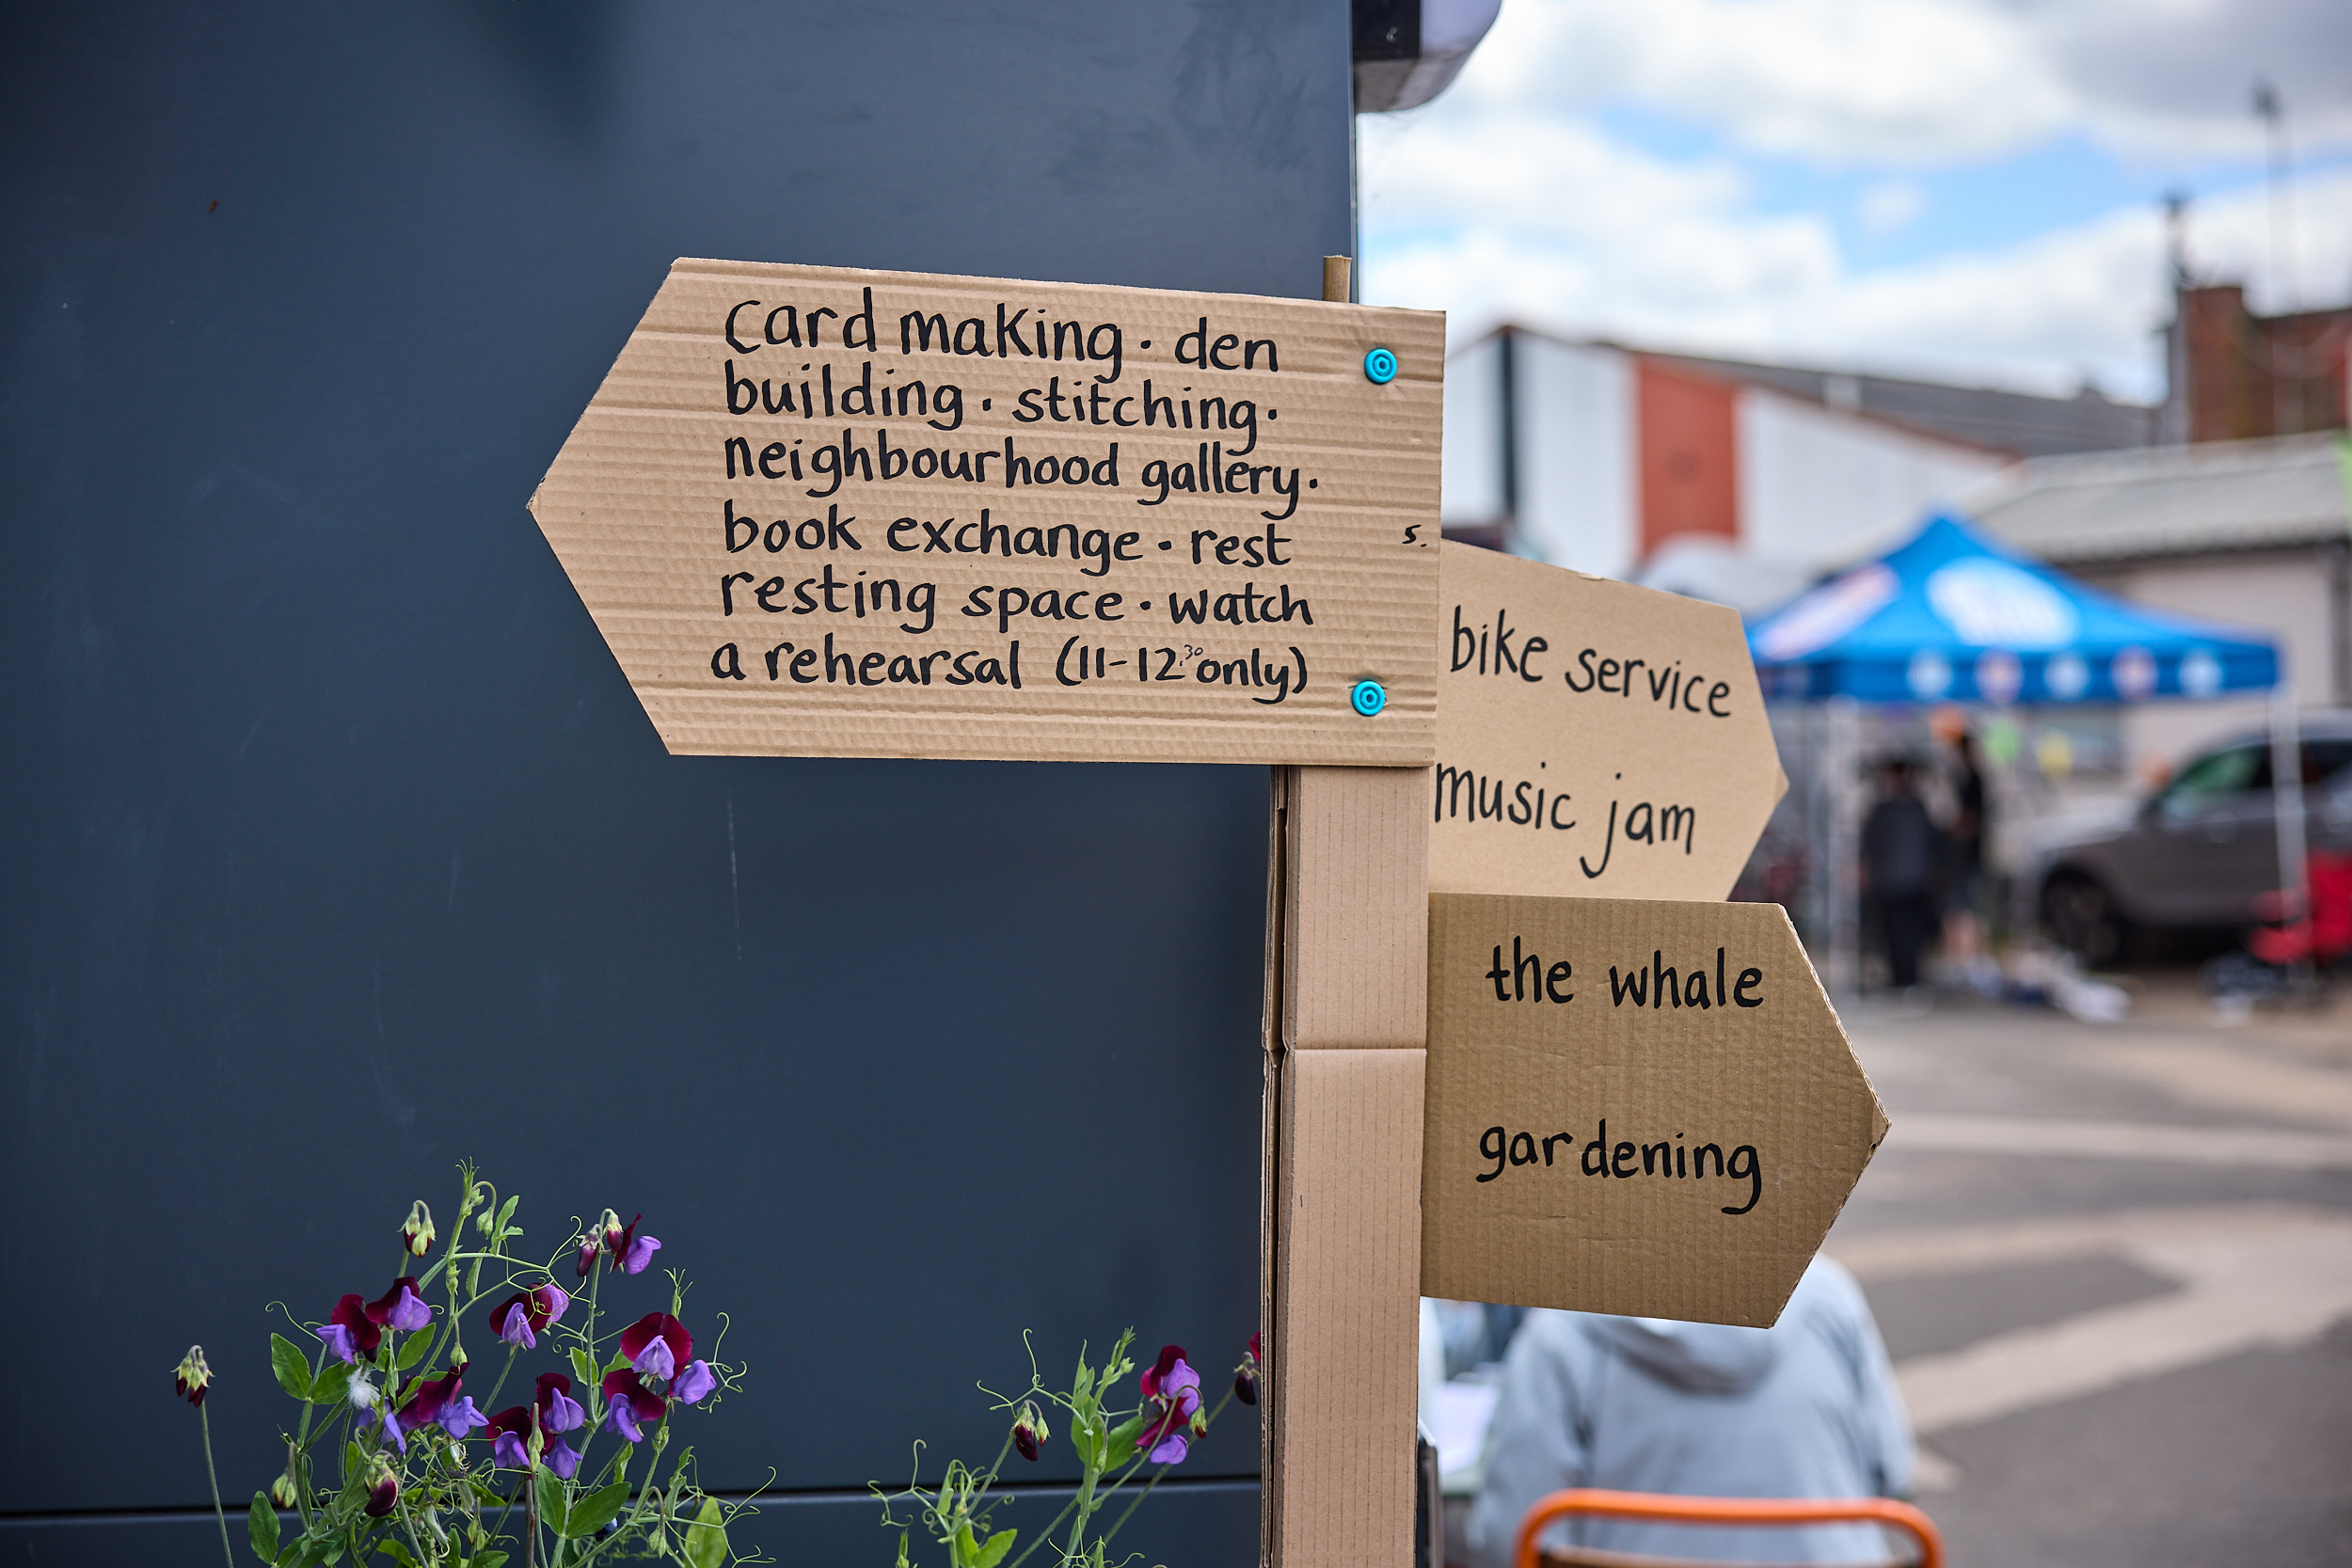 card making · den
building · stitching ·
neighbourhood gallery ·
book exchange · rest
resting space · watch
a rehearsal (11-12.30 only)
s.
bike service
music jam
the whale
gardening